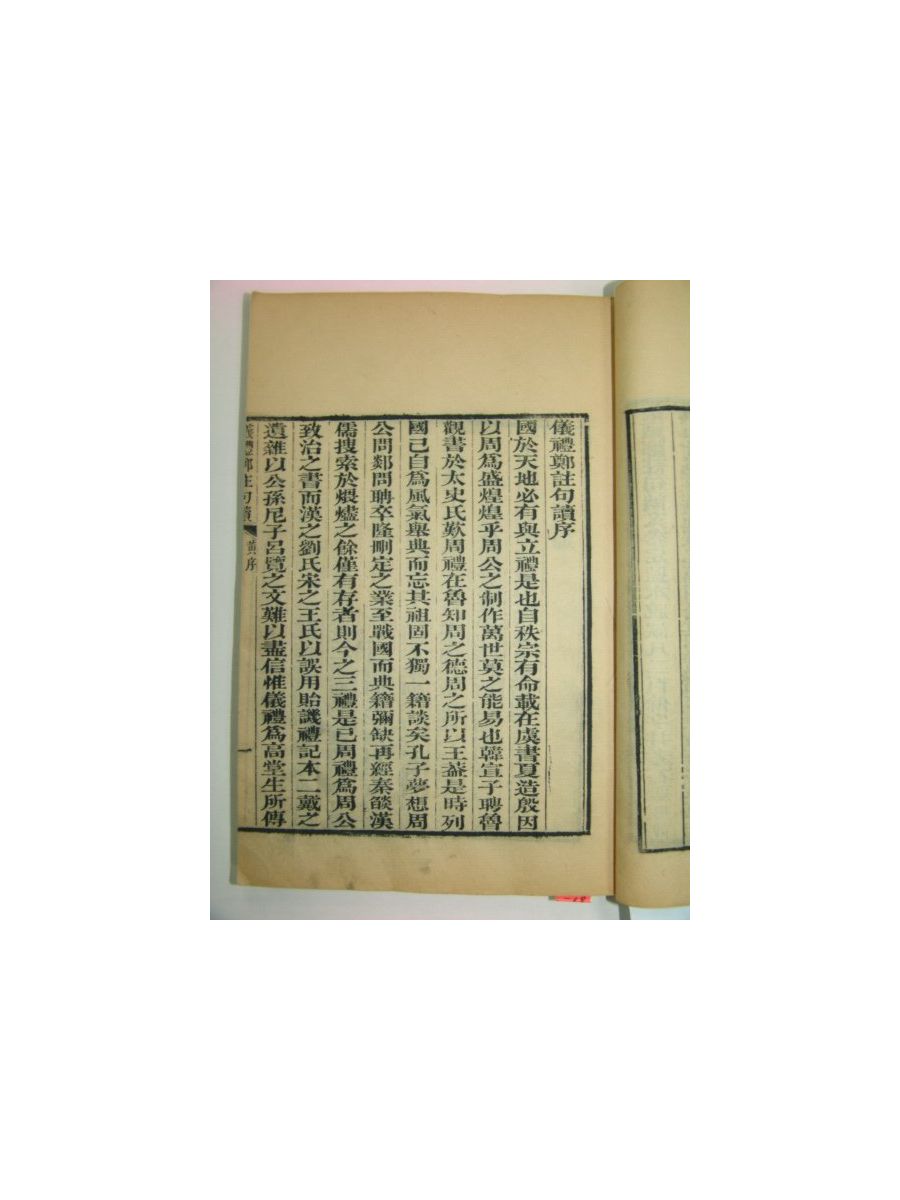 儀禮鄭註句讀序
國於天地必有與立禮是也自秩宗有命載在虞書夏造殷因
以周爲盛煌煌乎周公之制作萬世莫之能易也韓宣子聘魯
觀書於太史氏歎周禮在魯知周之德周之所以王葢是時列
國已自爲風氣舉典而忘其祖固不獨一籍談矣孔子夢想周
公問郯問聃卒隆刪定之業至戰國而典籍彌缺再經秦燄漢
儒搜索於煨燼之餘僅有存者則今之三禮是已周禮爲周公
致治之書而漢之劉氏宋之王氏以誤用貽譏禮記本二戴之
遺雜以公孫尼子呂覽之文難以盡信惟儀禮爲高堂生所傳
儀禮鄭註句讀 序 一